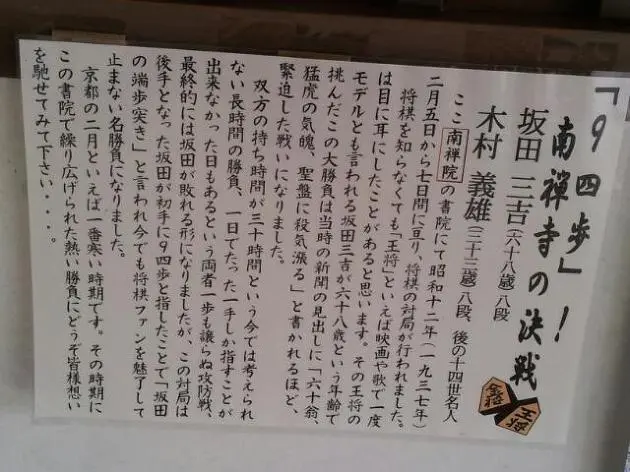 「９四歩」！
南禅寺の決戦
坂田 三吉（六十八歳）八段
木村 義雄（三十三歳）八段 後の十四世名人
ここ南禅院の書院にて昭和十二年（一九三七年）
二月五日から七日間に亘り、将棋の対局が行われました。
将棋を知らなくても「王将」といえば映画や歌で一度
は目に耳にしたことがあると思います。その王将の
モデルとも言われる坂田三吉が六十八歳という年齢で
挑んだこの大勝負は当時の新聞の見出しに「六十翁、
猛虎の気魄、聖盤に殺気漲る」と書かれるほど、
緊迫した戦いになりました。
双方の持ち時間が三十時間という今では考えられ
ない長時間の勝負、一日でたった一手しか指すことが
出来なかった日もあるという両者一歩も譲らぬ攻防戦、
最終的には坂田が敗れる形になりましたが、この対局は
後手となった坂田が初手に９四歩と指したことで「坂田
の端歩突き」と言われ今でも将棋ファンを魅了して
止まない名勝負になりました。
京都の二月といえば一番寒い時期です。その時期に
この書院で繰り広げられた熱い勝負にどうぞ皆様想い
を馳せてみて下さい・・・。
金将
王将